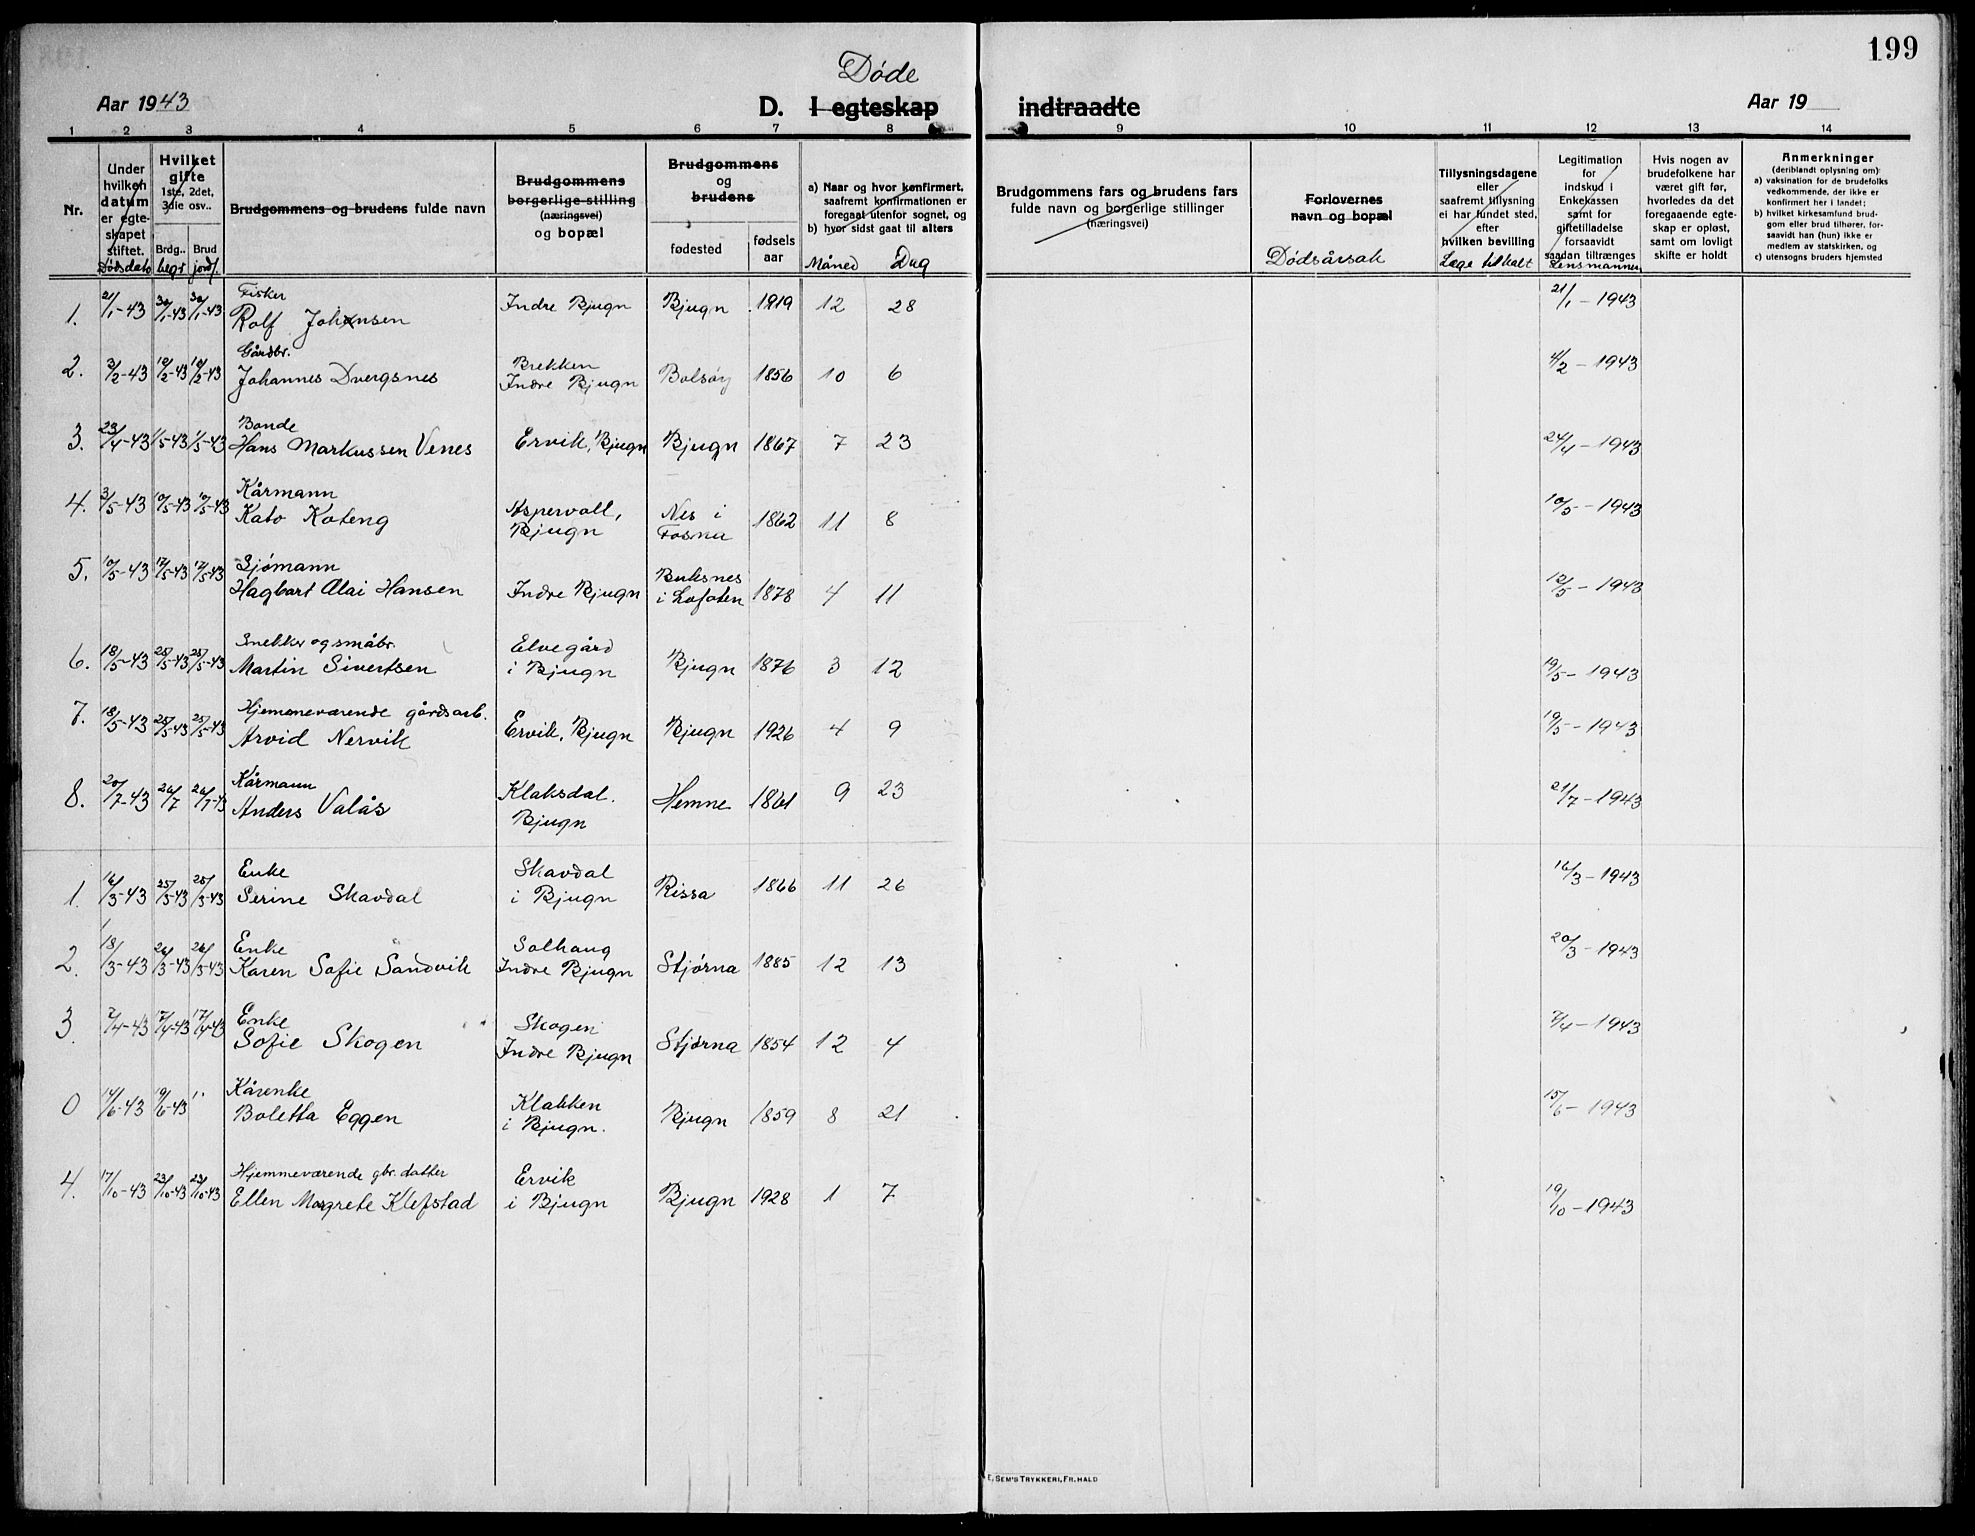 199
Døde
Aar 1943 D. I egteskap indtraadte Aar 19
1 2 3 4 5 6 7 8 9 10 11 12 13 14
Nr.
Under
hvilken
datum
er egte-
skapet
stiftet.
Dødsdato
Hvilket
gifte
1ste, 2det,
3die osv..
Brdg.. Brud
begr jordf.
Brudgommens og brudens fulde navn
Brudgommens
borgerlige stilling
(næringsvei)
og bopæl
Brudgommens
og
brudens
fødested
fødsels
aar
a) Naar og hvor konfirmert,
saafremt konfirmationen er
foregaat utenfor sognet, og
b) hvor sidst gaat til alters
Måned Dag
Brudgommens fars og brudens fars
fulde navn og borgerlige stillinger
(næringsvei)
Forlovernes
navn og bopæl
Dødsårsak
Tillysningsdagene
eller
saafremt tillysning
ei har fundet sted,
efter
hvilken bevilling
Læge tilkalt
Legitimation
for
indskud i
Enkekassen
samt for
giftetilladelse
forsaavidt
saadan tiltrænges
Lensmannen
Hvis nogen av
brudefolkene har
været gift før,
hvorledes da det
foregaaende egte-
skap er opløst,
samt om lovligt
skifte er holdt
Anmerkninger
(deriblandt oplysning om)
a) vaksination for de brudefolks
vedkommende, der ikke er
konfirmert her i landet;
b) hvilket kirkesamfund brud-
gom eller brud tilhører, for-
saavidt han (hun) ikke er
medlem av statskirken, og
c) utensogns bruders hjemsted
Fisker
1. 21/1-43 30/1-43 30/1-43 Rolf Johansen Indre Bjugn Bjugn 1919 12 28 21/1-1943
Gårdbr. Brekken
2. 3/2-43 10/2-43 10/2-43 Johannes Dvergsnes Indre Bjugn Bolsøy 1856 10 6 4/2-1943
Bonde
3. 23/4-43 1/5-43 1/5-43 Hans Markussen Venes Ervik, Bjugn Bjugn 1867 7 23 24/4-1943
Kårmann Aspervoll, Nes i
4. 3/5-43 10/5-43 10/5-43 Kato Koteng Bjugn Fosnes 1862 11 8 10/5-1943
Sjømann Buksnes
5. 10/5-43 17/5-43 17/5-43 Hagbart Olai Hansen Indre Bjugn i Lofoten 1878 4 11 12/5-1943
Snekker og småbr. Elvegård
6. 18/5-43 25/5-43 25/5-43 Martin Sivertsen i Bjugn Bjugn 1876 3 12 19/5-1943
Hjemmeværende gårdsarb.
7. 18/5-43 25/5-43 25/5-43 Arvid Nervik Ervik, Bjugn Bjugn 1926 4 9 19/5-1943
Kårmann Klaksdal.
8. 20/7-43 26/7 26/7-43 Anders Valås Bjugn Hemne 1861 9 23 21/7-1943
Enke Skavdal
1. 16/3-43 25/3-43 25/3-43 Serine Skavdal i Bjugn Rissa 1866 11 26 16/3-1943
Enke Solhaug
2. 18/3-43 26/3-43 26/3-43 Karen Sofie Sandvik Indre Bjugn Stjørna 1885 12 13 20/3-1943
Enke Skogen
3. 7/4-43 17/4-43 17/4-43 Sofie Skogen Indre Bjugn Stjørna 1854 12 4 7/4-1943
Kårenke Klakken
0 14/6-43 19/6-43 " Boletta Eggen i Bjugn. Bjugn 1859 8 21 15/6-1943
Hjemmeværende gbr. datter Ervik
4. 17/10-43 23/10-43 23/10-43 Ellen Margrete Klefstad i Bjugn Bjugn 1928 1 7 19/10-1943
E. SEM'S TRYKKERI, FR.HALD